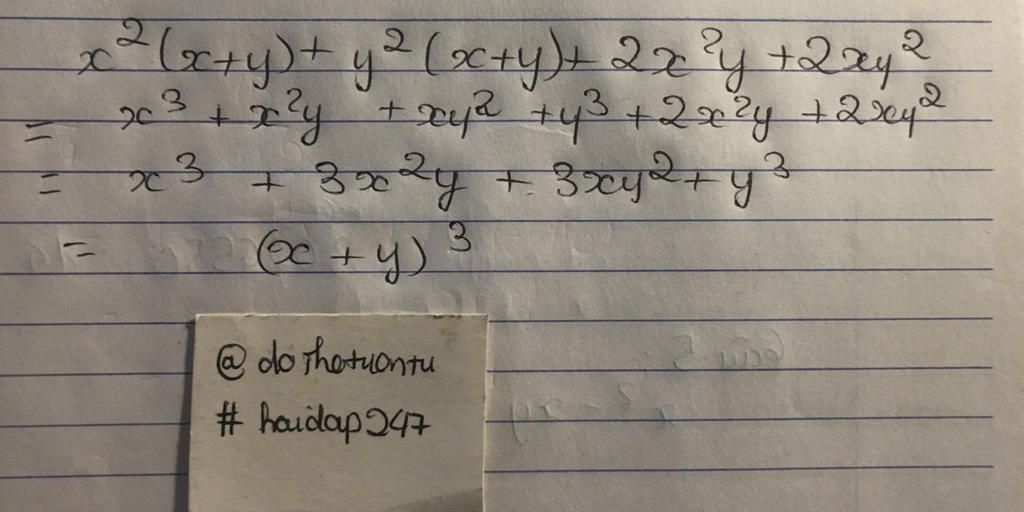 x²(x+y)+ y²(x+y)+ 2x²y +2xy²
= x³ + x²y + xy² + y³ + 2x²y + 2xy²
= x³ + 3x²y + 3xy² + y³
= (x + y)³
@ doThetuontu
# haidap247